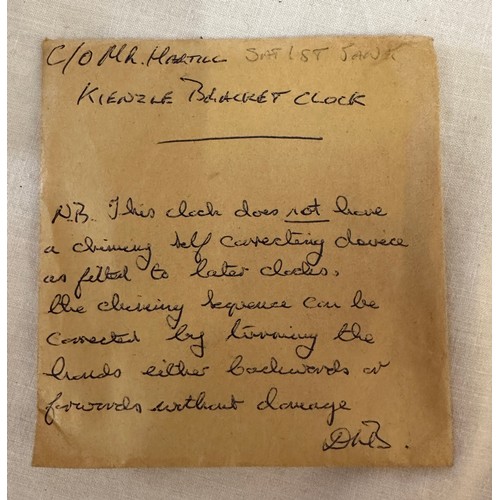 C/O MR. HARTILL SAT 1ST JAN
KIENZLE BRACKET CLOCK
N.B. This clock does not have
a chiming self correcting device
as fitted to later clocks.
the chiming sequence can be
corrected by turning the
hands either backwords or
forwords without damage